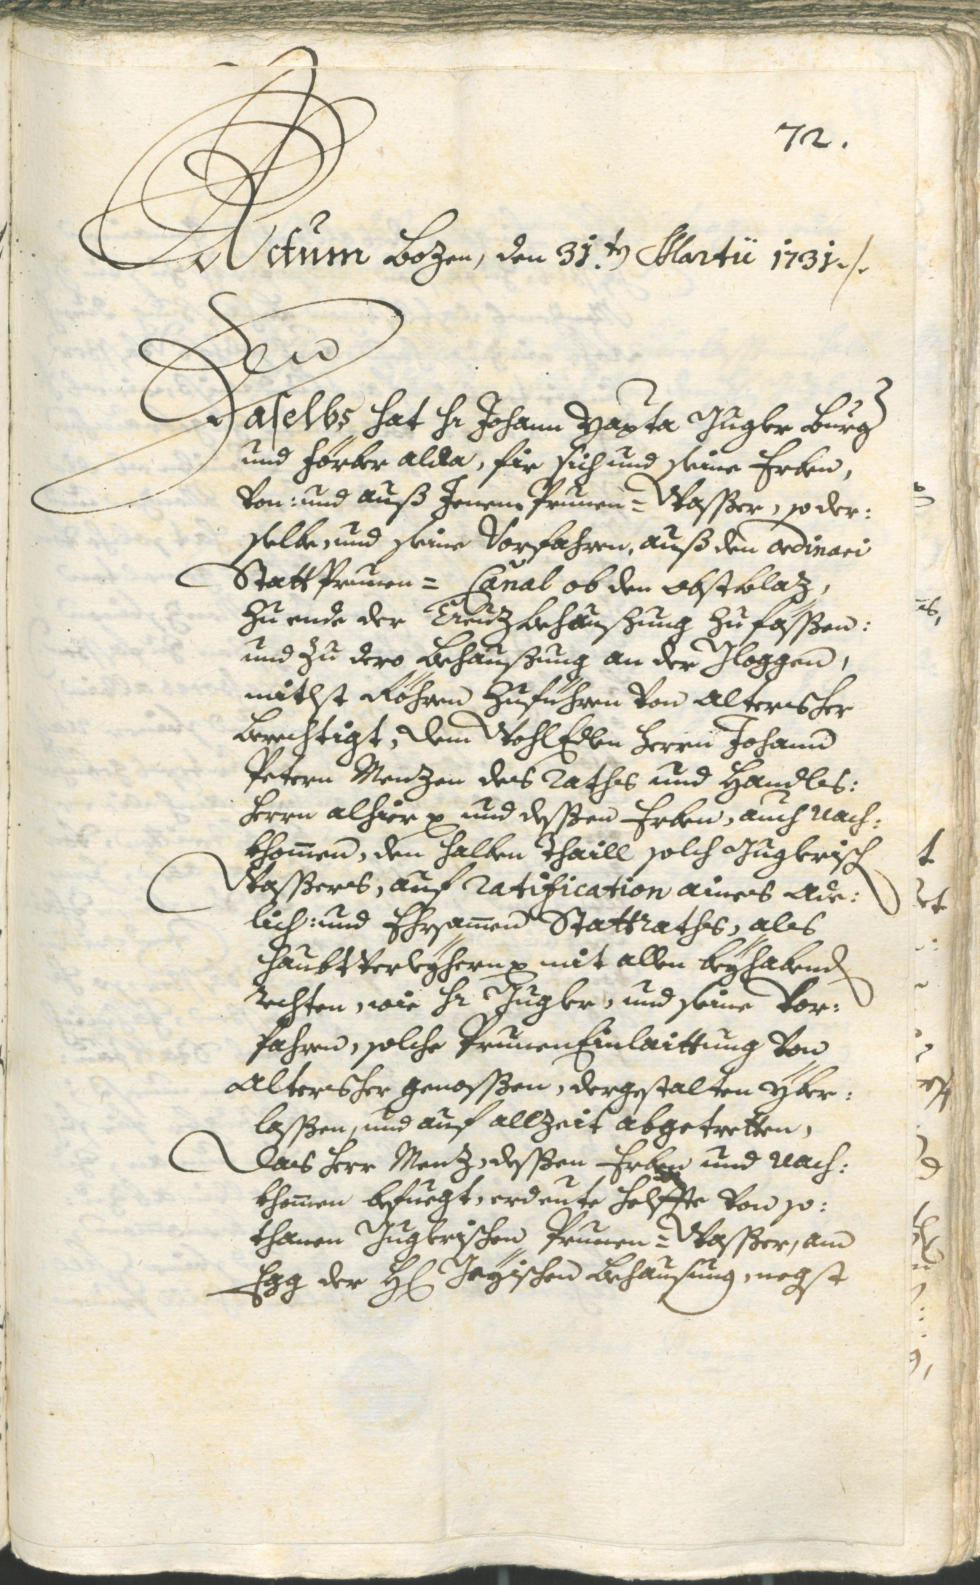 72.
Actum Bozen, den 31.ten Martii 1731./.
Daselbs hat Hr Johann Bapta Jugler Burg
und Förber alda, für sich und seine Erben,
von: und auß Jenem Prunen= Wasser, so der:
selbe, und seine Vorfahren, auß den ordinari
Statt Prunen= Canal ob den obstblaz,
zu ende der Creuzbehaussung zufassen:
und zu dero Behaussung an der Gloggen,
mitlst Röhren zuführen von altersher
berechtigt, dem Wohl Edlen Herrn Johann
Petern Menzen des Raths und Handls:
herrn alhier und dessen Erben, auch Nach:
khomen, den halben Thaill solch Juglerisch
Wassers, auf ratification aines Ade:
lich: und Ehrsamen Stattraths, als
haubt Verleyhern mit allen beyhabend
rechten, wie Hr Jugler, und seine Vor:
fahren, solche Prunen Einlaittung von
Altersher genossen, dergestalten yber:
lassen, und auf allzeit abgetretten,
Das Herr Menz, dessen Erben und Nach:
khomen befuegt, erdeute helffte von so:
thanen Juglerischen Prunen= Wasser, am
Egg der Behausung, negst